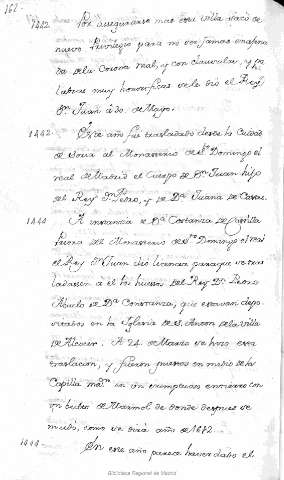 162.
1442. Por asegurarse mas esta villa sacó de
nuevo Privilegio para no ser jamas enagena
da de la Corona real, y con clausulas, y pa
labras muy honorificas se le dió el Rey
Dn. Juan á de Mayo.
1442. Este año fue trasladado desde la Ciudad
de Soria al Monasterio de Sto. Domingo el
real de Madrid el Cuerpo de Dn. Juan hijo
del Rey Dn. Pedro, y de Da. Juana de Castro.
1444 A instancia de Da. Costanza de Castilla
Priora del Monasterio de Sto. Domingo el real
el Rey Dn. Juan dió licencia para que se tras
ladasen a el los huesos del Rey Dn. Pedro
Abuelo de Da. Constanza, que estavan depo
sitados en la Iglesia de S. de la Villa
de Alcocer. A 24 de Marzo se hizo esta
traslacion, y fueron puestos en medio de la
Capilla mor. en un sumptuoso entierro con
un bulto de Marmol de donde despues se
mudó, como se dirá año de 1612.
1444. En este año parece haver dado el
Biblioteca Regional de Madrid